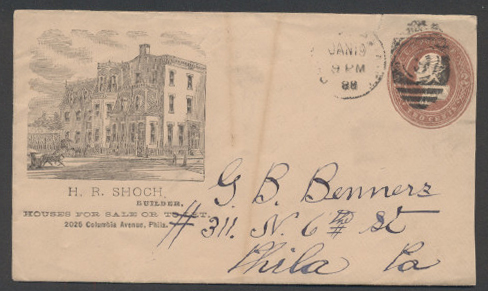 H. R. SHOCH,
BUILDER.
HOUSES FOR SALE OR TO LET.
2025 Columbia Avenue, Phila.
JAN 19
8 PM
88
G. B. Benners
# 311. N. 6th St
Phila Pa